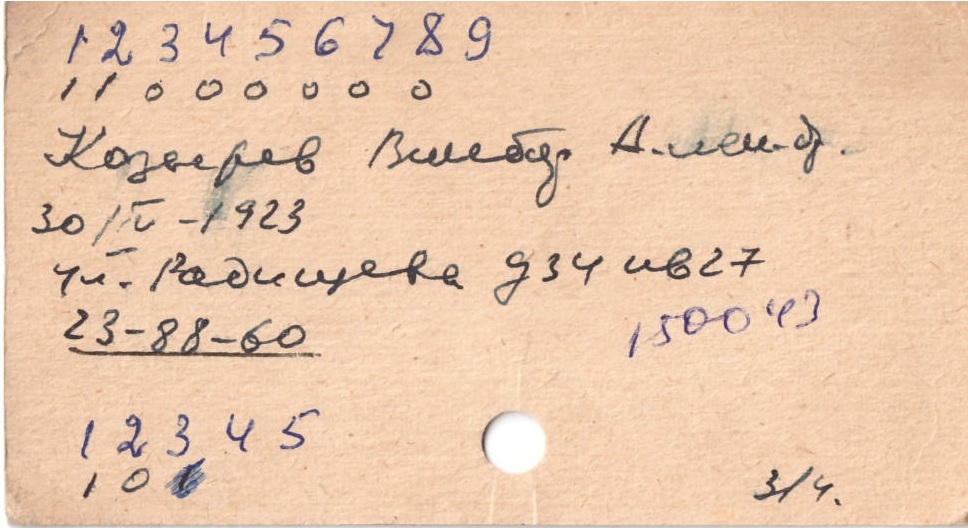 1 2 3 4 5 6 7 8 9
1 1 0 0 0 0 0 0
Козырев Виктор Алек-др.
30/IV - 1923
ул. Радищева д 34 кв 27
23-88-60
150043
1 2 3 4 5
1 0
3/4.